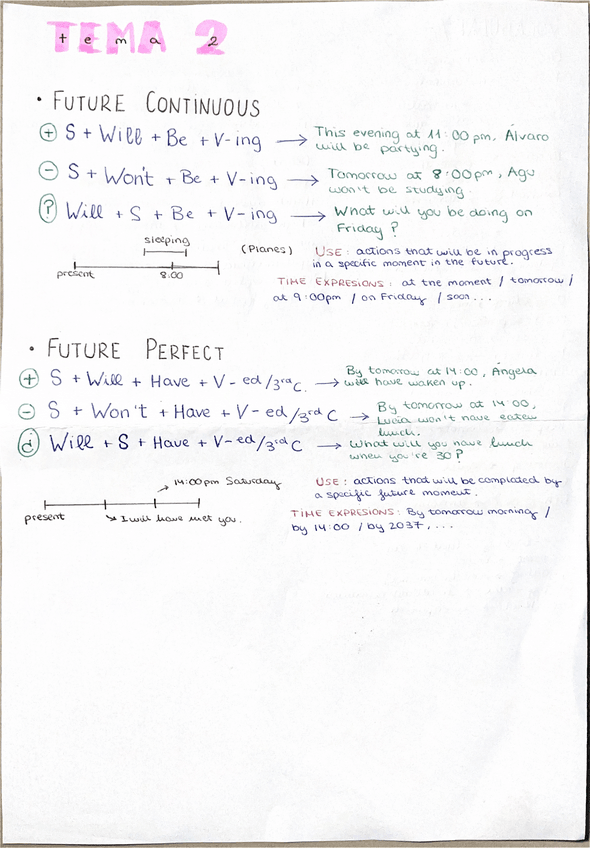 TEMA 2
tema 2
• FUTURE CONTINUOUS
+ S + Will + Be + V-ing → This evening at 11:00 pm, Álvaro
will be partying.
- S + Won't + Be + V-ing → Tomorrow at 8:00pm, Agu
won't be studying.
? Will + S + Be + V-ing → What will you be doing on
Friday?
sleeping
present 8:00
(Planes)
USE: actions that will be in progress
in a specific moment in the future.
TIME EXPRESIONS: at the moment / tomorrow /
at 9:00pm / on Friday / soon...
• FUTURE PERFECT
+ S + Will + Have + V-ed/3rd C. → By tomorrow at 14:00, Ángela
will have waken up.
- S + Won't + Have + V-ed/3rd C → By tomorrow at 14:00,
Lucía won't have eaten
lunch.
¿ Will + S + Have + V-ed/3rd C → What will you have lunch
when you're 30?
→ 14:00pm Saturday
present → I will have met you.
USE: actions that will be completed by
a specific future moment.
TIME EXPRESIONS: By tomorrow morning /
by 14:00 / by 2037, ...